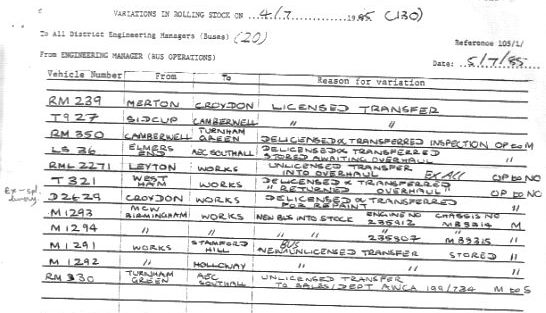 VARIATIONS IN ROLLING STOCK ON 4/7 1985 (130)
To All District Engineering Managers (Buses) (20)
Reference 105/1/
From ENGINEERING MANAGER (BUS OPERATIONS)
Date: 5/7/85
Vehicle Number From To Reason for variation
RM 239 MERTON CROYDON LICENSED TRANSFER
T 927 SIDCUP CAMBERWELL " "
RM 350 CAMBERWELL TURNHAM GREEN DELICENSED & TRANSFERRED INSPECTION OP to M
LS 36 ELMERS END AEC SOUTHALL DELICENSED & TRANSFERRED STORED AWAITING OVERHAUL "
RML 2271 LEYTON WORKS UNLICENSED TRANSFER INTO OVERHAUL EX AII OP to NO
T 321 WEST HAM WORKS DELICENSED & TRANSFERRED " RETURNED OVERHAUL " OP to NO
Ex-spl. D2629 CROYDON WORKS DELICENSED & TRANSFERRED FOR REPAINT "
M 1293 MCW BIRMINGHAM WORKS NEW BUS INTO STOCK ENGINE NO 235912 CHASSIS NO MB9314 M
M 1294 " " " " 235907 MB9315 "
M 1291 WORKS STAMFORD HILL NEW BUS UNLICENSED TRANSFER STORED "
M 1292 " HOLLOWAY " " " "
RM 330 TURNHAM GREEN AEC SOUTHALL UNLICENSED TRANSFER TO SALES/DEPT AWCA 199/734 M to S